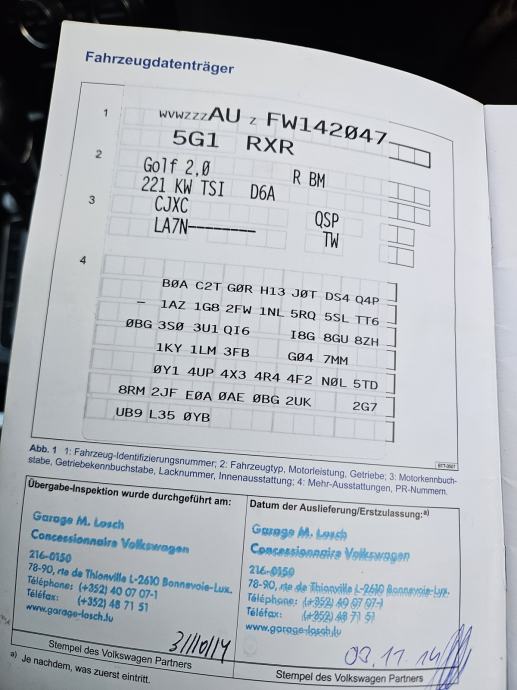 Fahrzeugdatenträger
1 WVWZZZAU Z FW142047
5G1 RXR
2 Golf 2,0 R BM
221 KW TSI D6A
3 CJXC QSP
LA7N--------- TW
4
B0A C2T G0R H13 J0T DS4 Q4P
- 1AZ 1G8 2FW 1NL 5RQ 5SL TT6
0BG 3S0 3U1 QI6 I8G 8GU 8ZH
1KY 1LM 3FB G04 7MM
0Y1 4UP 4X3 4R4 4F2 N0L 5TD
8RM 2JF E0A 0AE 0BG 2UK 2G7
UB9 L35 0YB
Abb. 1 1: Fahrzeug-Identifizierungsnummer; 2: Fahrzeugtyp, Motorleistung, Getriebe; 3: Motorkennbuch-
stabe, Getriebekennbuchstabe, Lacknummer, Innenausstattung; 4: Mehr-Ausstattungen, PR-Nummern.
Übergabe-Inspektion wurde durchgeführt am:
Garage M. Losch
Concessionnaire Volkswagen
216-0150
78-90, rte de Thionville L-2610 Bonnevoie-Lux.
Téléphone: (+352) 40 07 07-1
Téléfax: (+352) 48 71 51
www.garage-losch.lu
31/10/14
Stempel des Volkswagen Partners
Datum der Auslieferung/Erstzulassung:a)
Garage M. Losch
Concessionnaire Volkswagen
216-0150
78-90, rte de Thionville L-2610 Bonnevoie-Lux.
Téléphone: (+352) 40 07 07-1
Téléfax: (+352) 48 71 51
www.garage-losch.lu
03.11.14
Stempel des Volkswagen Partners
a) Je nachdem, was zuerst eintritt.